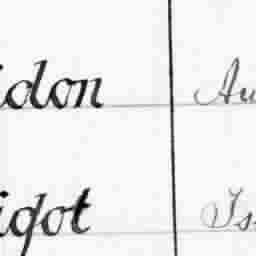 idon Au
igot Is